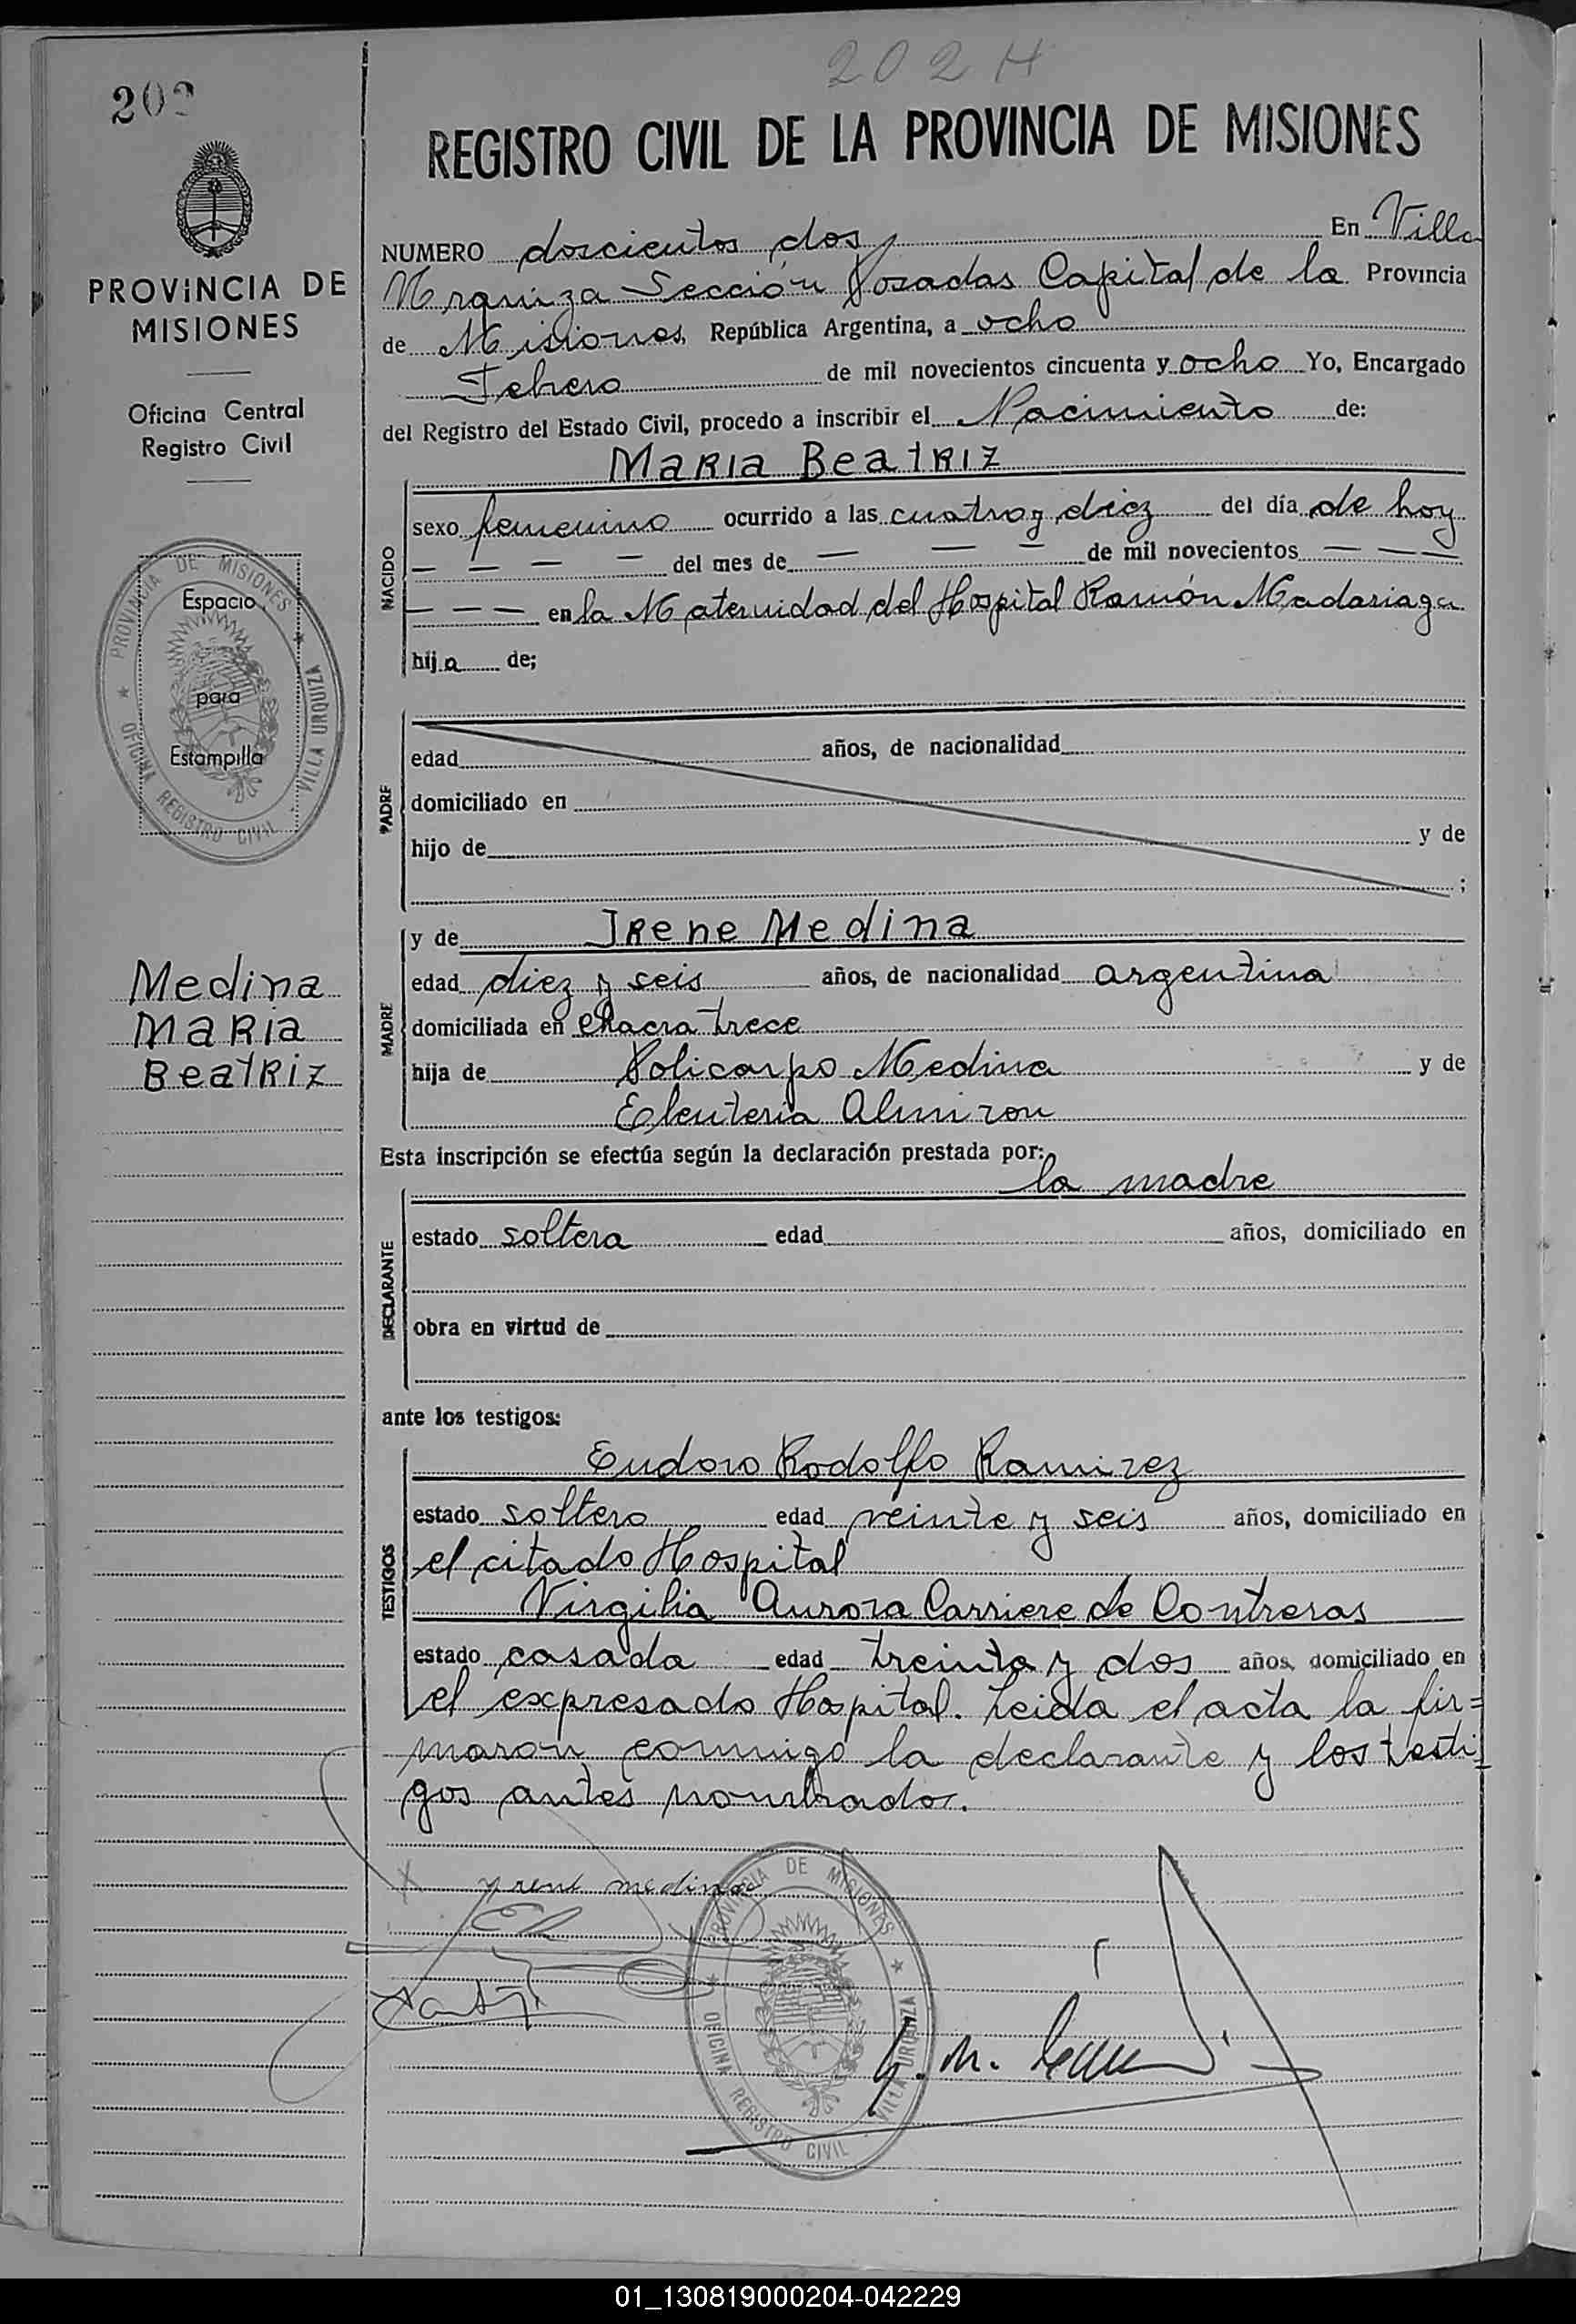 202 H
202
REGISTRO CIVIL DE LA PROVINCIA DE MISIONES
PROVINCIA DE
MISIONES
Oficina Central
Registro Civil
NUMERO doscientos dos En Villa
Urquiza Sección Posadas Capital de la Provincia
de Misiones, República Argentina, a ocho
Febrero de mil novecientos cincuenta y ocho Yo, Encargado
del Registro del Estado Civil, procedo a inscribir el Nacimiento de:
NACIDO
MARIA BEATRIZ
sexo femenino ocurrido a las cuatro y diez del día de hoy
— — — del mes de — — — de mil novecientos — — —
— — — en la Maternidad del Hospital Ramón Madariaga
hija de;
PROVINCIA DE MISIONES
OFICINA REGISTRO CIVIL
VILLA URQUIZA
Espacio
para
Estampilla
PADRE
edad años, de nacionalidad
domiciliado en
hijo de y de
;
Medina
Maria
Beatriz
MADRE
y de Irene Medina
edad diez y seis años, de nacionalidad argentina
domiciliada en chacra trece
hija de Policarpo Medina y de
Eleuteria Almiron
Esta inscripción se efectúa según la declaración prestada por:
DECLARANTE
la madre
estado soltera edad años, domiciliado en
obra en virtud de
ante los testigos:
TESTIGOS
Eudoro Rodolfo Ramirez
estado soltero edad veinte y seis años, domiciliado en
el citado Hospital
Virgilia Aurora Carriere de Contreras
estado casada edad treinta y dos años, domiciliado en
el expresado Hospital. Leida el acta la fir=
maron conmigo la declarante y los testi=
gos antes nombrados.
X yrene medina
PROVINCIA DE MISIONES
OFICINA REGISTRO CIVIL
VILLA URQUIZA
01_130819000204-042229